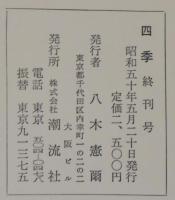 四季 終刊号
昭和五十年五月二十日発行
定価二、五〇〇円
発行者 八木憲爾
東京都千代田区内幸町一の二の二
大阪ビル
発行所 株式会社 潮流社
電話 東京
振替 東京九一三七五